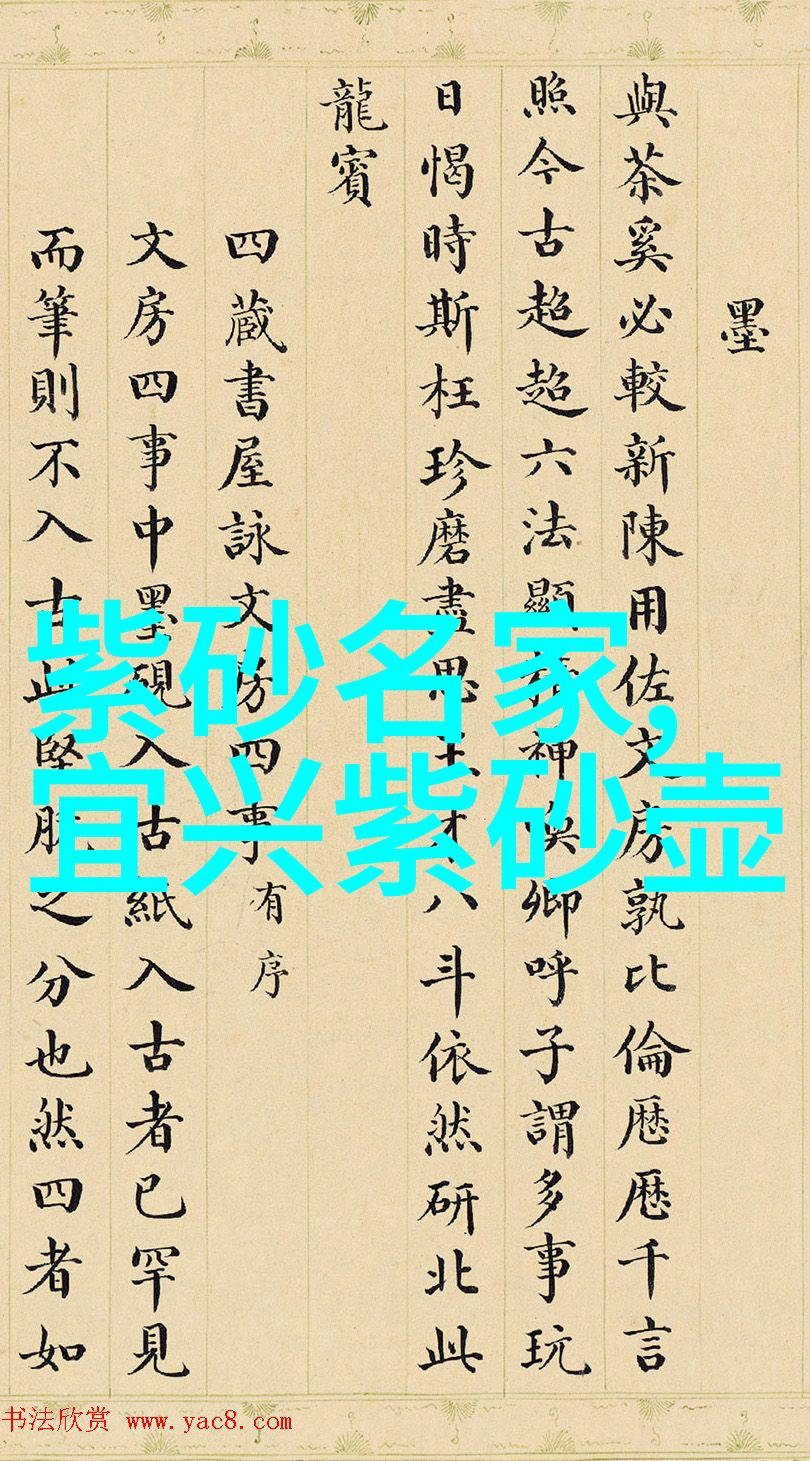 墨
與茶奚必較新陳用佐文房孰比倫歷歷千言
照今古超超六法顯精神喚卿呼子謂多事玩
日愒時斯枉珍磨盡思王才八斗依然研北此
龍賓
四蔵書屋詠文房四事有序
文房四事中墨硯入古紙入古者已罕見
而筆則不入古此堅脆之分也然四者如
紫砂名家,
宜兴紫砂壶
书法欣赏 www.yac8.com